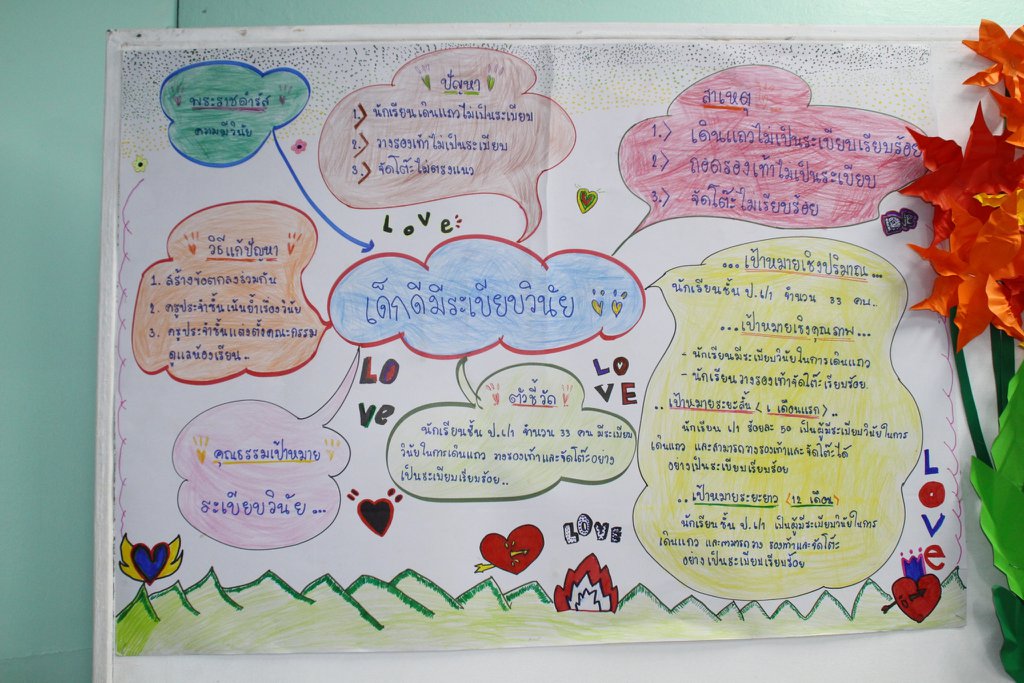 พระราชดำรัส
ความมีวินัย
ปัญหา
1.) นักเรียนเดินแถวไม่เป็นระเบียบ
2.) วางรองเท้าไม่เป็นระเบียบ
3.) จัดโต๊ะไม่ตรงแนว
สาเหตุ
1.) เดินแถวไม่เป็นระเบียบเรียบร้อย
2.) ถอดรองเท้าไม่เป็นระเบียบ
3.) จัดโต๊ะไม่เรียบร้อย
Love
วิธีแก้ปัญหา
1. สร้างข้อตกลงร่วมกัน
2. ครูประจำชั้นเน้นย้ำเรื่องวินัย
3. ครูประจำชั้นแต่งตั้งคณะกรรมการ
ดูแลห้องเรียน..
เด็กดีมีระเบียบวินัย
... เป้าหมายเชิงปริมาณ ...
นักเรียนชั้น ป.๖/๑ จำนวน 33 คน..
... เป้าหมายเชิงคุณภาพ ...
- นักเรียนมีระเบียบวินัยในการเดินแถว
- นักเรียนวางรองเท้าจัดโต๊ะเรียบร้อย.
.. เป้าหมายระยะสั้น <๑ เดือนแรก> ..
นักเรียน ๖/๑ ร้อยละ 50 เป็นผู้มีระเบียบวินัยในการ
เดินแถว และสามารถวางรองเท้า และจัดโต๊ะได้
อย่างเป็นระเบียบเรียบร้อย
.. เป้าหมายระยะยาว <12 เดือน>
นักเรียนชั้น ป.๖/๑ เป็นผู้มีระเบียบวินัยในการ
เดินแถว และสามารถวาง รองเท้าและจัดโต๊ะ
อย่างเป็นระเบียบเรียบร้อย
LO
Ve
LO
VE
ตัวชี้วัด
นักเรียนชั้น ป.๖/๑ จำนวน 33 คน มีระเบียบ
วินัยในการเดินแถว วางรองเท้าและจัดโต๊ะอย่าง
เป็นระเบียบเรียบร้อย..
คุณธรรมเป้าหมาย
ระเบียบวินัย ...
LOVE
LOVe